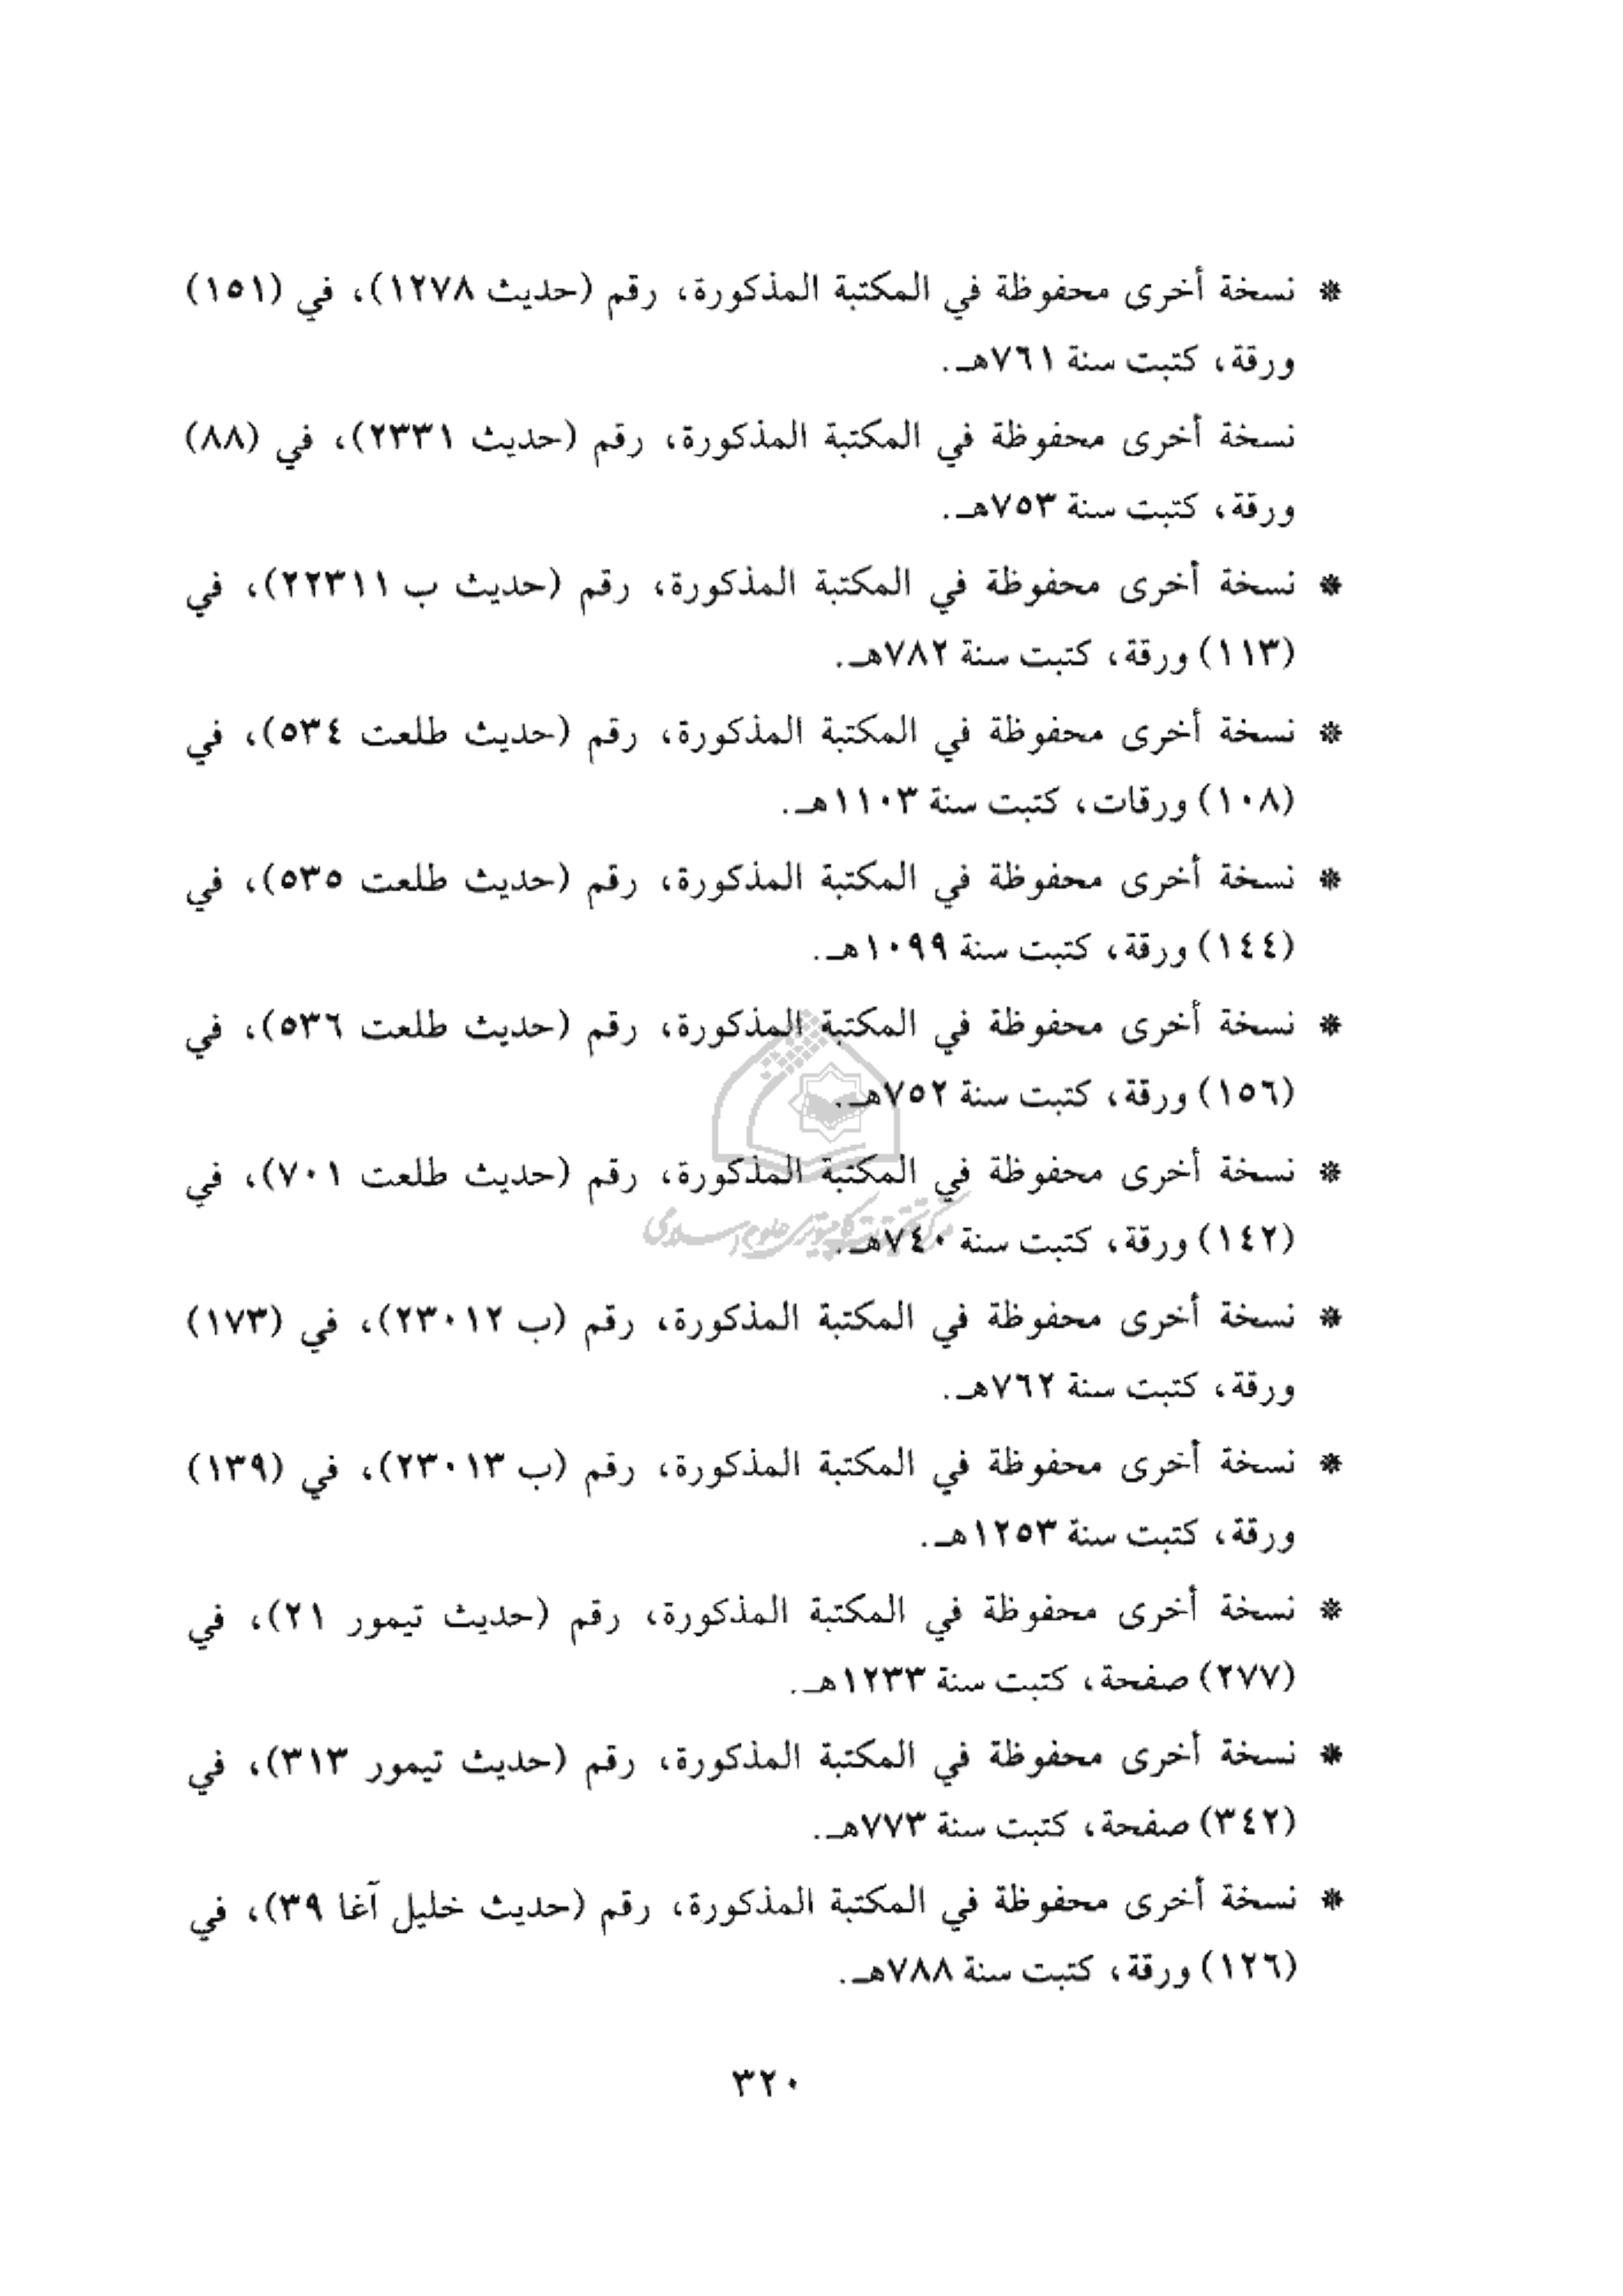 * نسخة أخرى محفوظة في المكتبة المذكورة، رقم (حديث ١٢٧٨)، في (١٥١)
ورقة، كتبت سنة ٧٦١هـ.
نسخة أخرى محفوظة في المكتبة المذكورة، رقم (حديث ٢٣٣١)، في (٨٨)
ورقة، كتبت سنة ٧٥٣هـ.
* نسخة أخرى محفوظة في المكتبة المذكورة، رقم (حديث ب ٢٢٣١١)، في
(١١٣) ورقة، كتبت سنة ٧٨٢هـ.
* نسخة أخرى محفوظة في المكتبة المذكورة، رقم (حديث طلعت ٥٣٤)، في
(١٠٨) ورقات، كتبت سنة ١١٠٣هـ.
* نسخة أخرى محفوظة في المكتبة المذكورة، رقم (حديث طلعت ٥٣٥)، في
(١٤٤) ورقة، كتبت سنة ١٠٩٩هـ.
* نسخة أخرى محفوظة في المكتبة المذكورة، رقم (حديث طلعت ٥٣٦)، في
(١٥٦) ورقة، كتبت سنة ٧٥٢هـ.
* نسخة أخرى محفوظة في المكتبة المذكورة، رقم (حديث طلعت ٧٠١)، في
(١٤٢) ورقة، كتبت سنة ٧٤٠هـ.
* نسخة أخرى محفوظة في المكتبة المذكورة، رقم (ب ٢٣٠١٢)، في (١٧٣)
ورقة، كتبت سنة ٧٦٢هـ.
* نسخة أخرى محفوظة في المكتبة المذكورة، رقم (ب ٢٣٠١٣)، في (١٣٩)
ورقة، كتبت سنة ١٢٥٣هـ.
* نسخة أخرى محفوظة في المكتبة المذكورة، رقم (حديث تيمور ٢١)، في
(٢٧٧) صفحة، كتبت سنة ١٢٣٣هـ.
* نسخة أخرى محفوظة في المكتبة المذكورة، رقم (حديث تيمور ٣١٣)، في
(٣٤٢) صفحة، كتبت سنة ٧٧٣هـ.
* نسخة أخرى محفوظة في المكتبة المذكورة، رقم (حديث خليل آغا ٣٩)، في
(١٢٦) ورقة، كتبت سنة ٧٨٨هـ.
٣٢٠